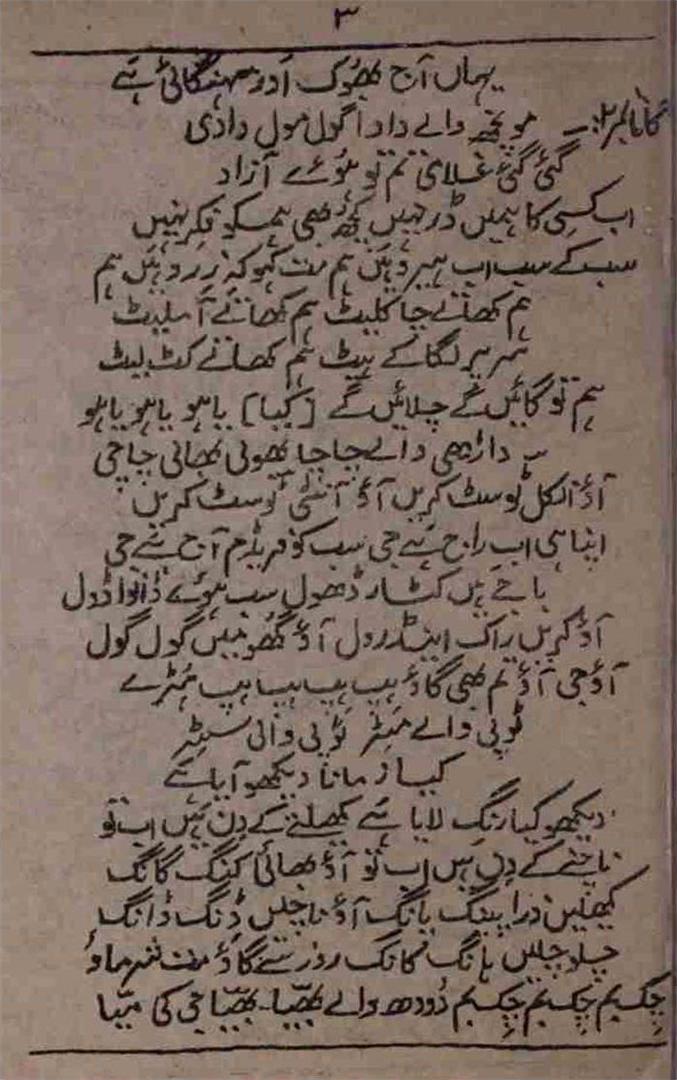 ۳
یہاں آج بھوک اور مہنگائی ہے
گانا نمبر ۲:۔ مونچھ والے دادا گول مول دادی
گئی گئی غلامی تم تو ہوئے آزاد
اب کسی کا ہمیں ڈر نہیں کچھ بھی ہمکو فکر نہیں
سب کے سب اب ہیرو ہیں ہم مت کہو کہ زیرو ہیں ہم
ہم کھاتے چاکلیٹ ہم کھاتے آملیٹ
سر پر لگا کے ہیٹ ہم کھاتے کٹ لیٹ
ہم تو گائیں گے چلائیں گے [کیا] یاہو یاہو یاہو
داڑھی والے چاچا بھولی بھالی چاچی
آؤ انکل ٹوسٹ کریں آؤ آنٹی ٹوسٹ کریں
اپنا ہی اب راج ہے جی سب کو فریڈم آج ہے جی
باجے ہیں گٹار ڈھول سب ہوئے ڈانواڈول
آؤ کریں راک اینڈ رول آؤ گھومیں گول گول
آؤ جی آؤ تم بھی گاؤ ہیپ ہیپ ہیپ ہیپ ہُرّے
ٹوپی والے مسٹر ٹوپی والی سسٹر
کیسا زمانا دیکھو آیا ہے
دیکھو کیا رنگ لایا ہے کھیلنے کے دن ہیں اب تو
ناچنے کے دن ہیں اب تو آؤ بھائی کنگ کانگ
کھیلیں ذرا پینگ پانگ آؤ ناچیں ڈنگ ڈانگ
چلو چلیں ہانگ کانگ روز سے گاؤ مت شرماؤ
چِک بم چِک بم چِک بم دودھ والے بھیّا۔ بھیّا جی کی میّا